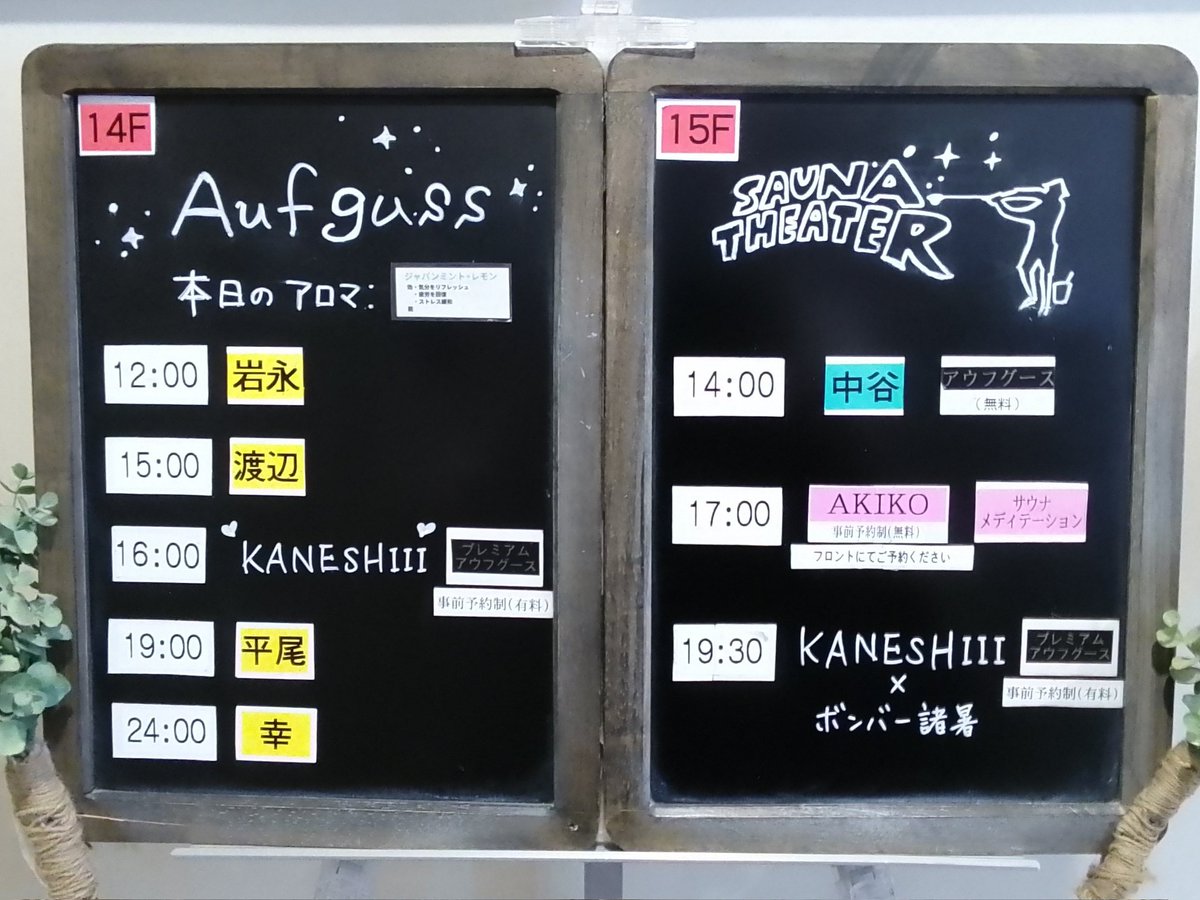 14F
Aufguss
本日のアロマ:
ジャパンミント・レモン
効・気分をリフレッシュ
・疲労を回復
・ストレス緩和
12:00 岩永
15:00 渡辺
16:00 KANESHIII プレミアム
アウフグース
事前予約制(有料)
19:00 平尾
24:00 幸
15F
SAUNA
THEATER
14:00 中谷 アウフグース
(無料)
17:00 AKIKO サウナ
メディテーション
事前予約制(無料)
フロントにてご予約ください
19:30 KANESHIII プレミアム
アウフグース
×
事前予約制(有料)
ボンバー諸暑